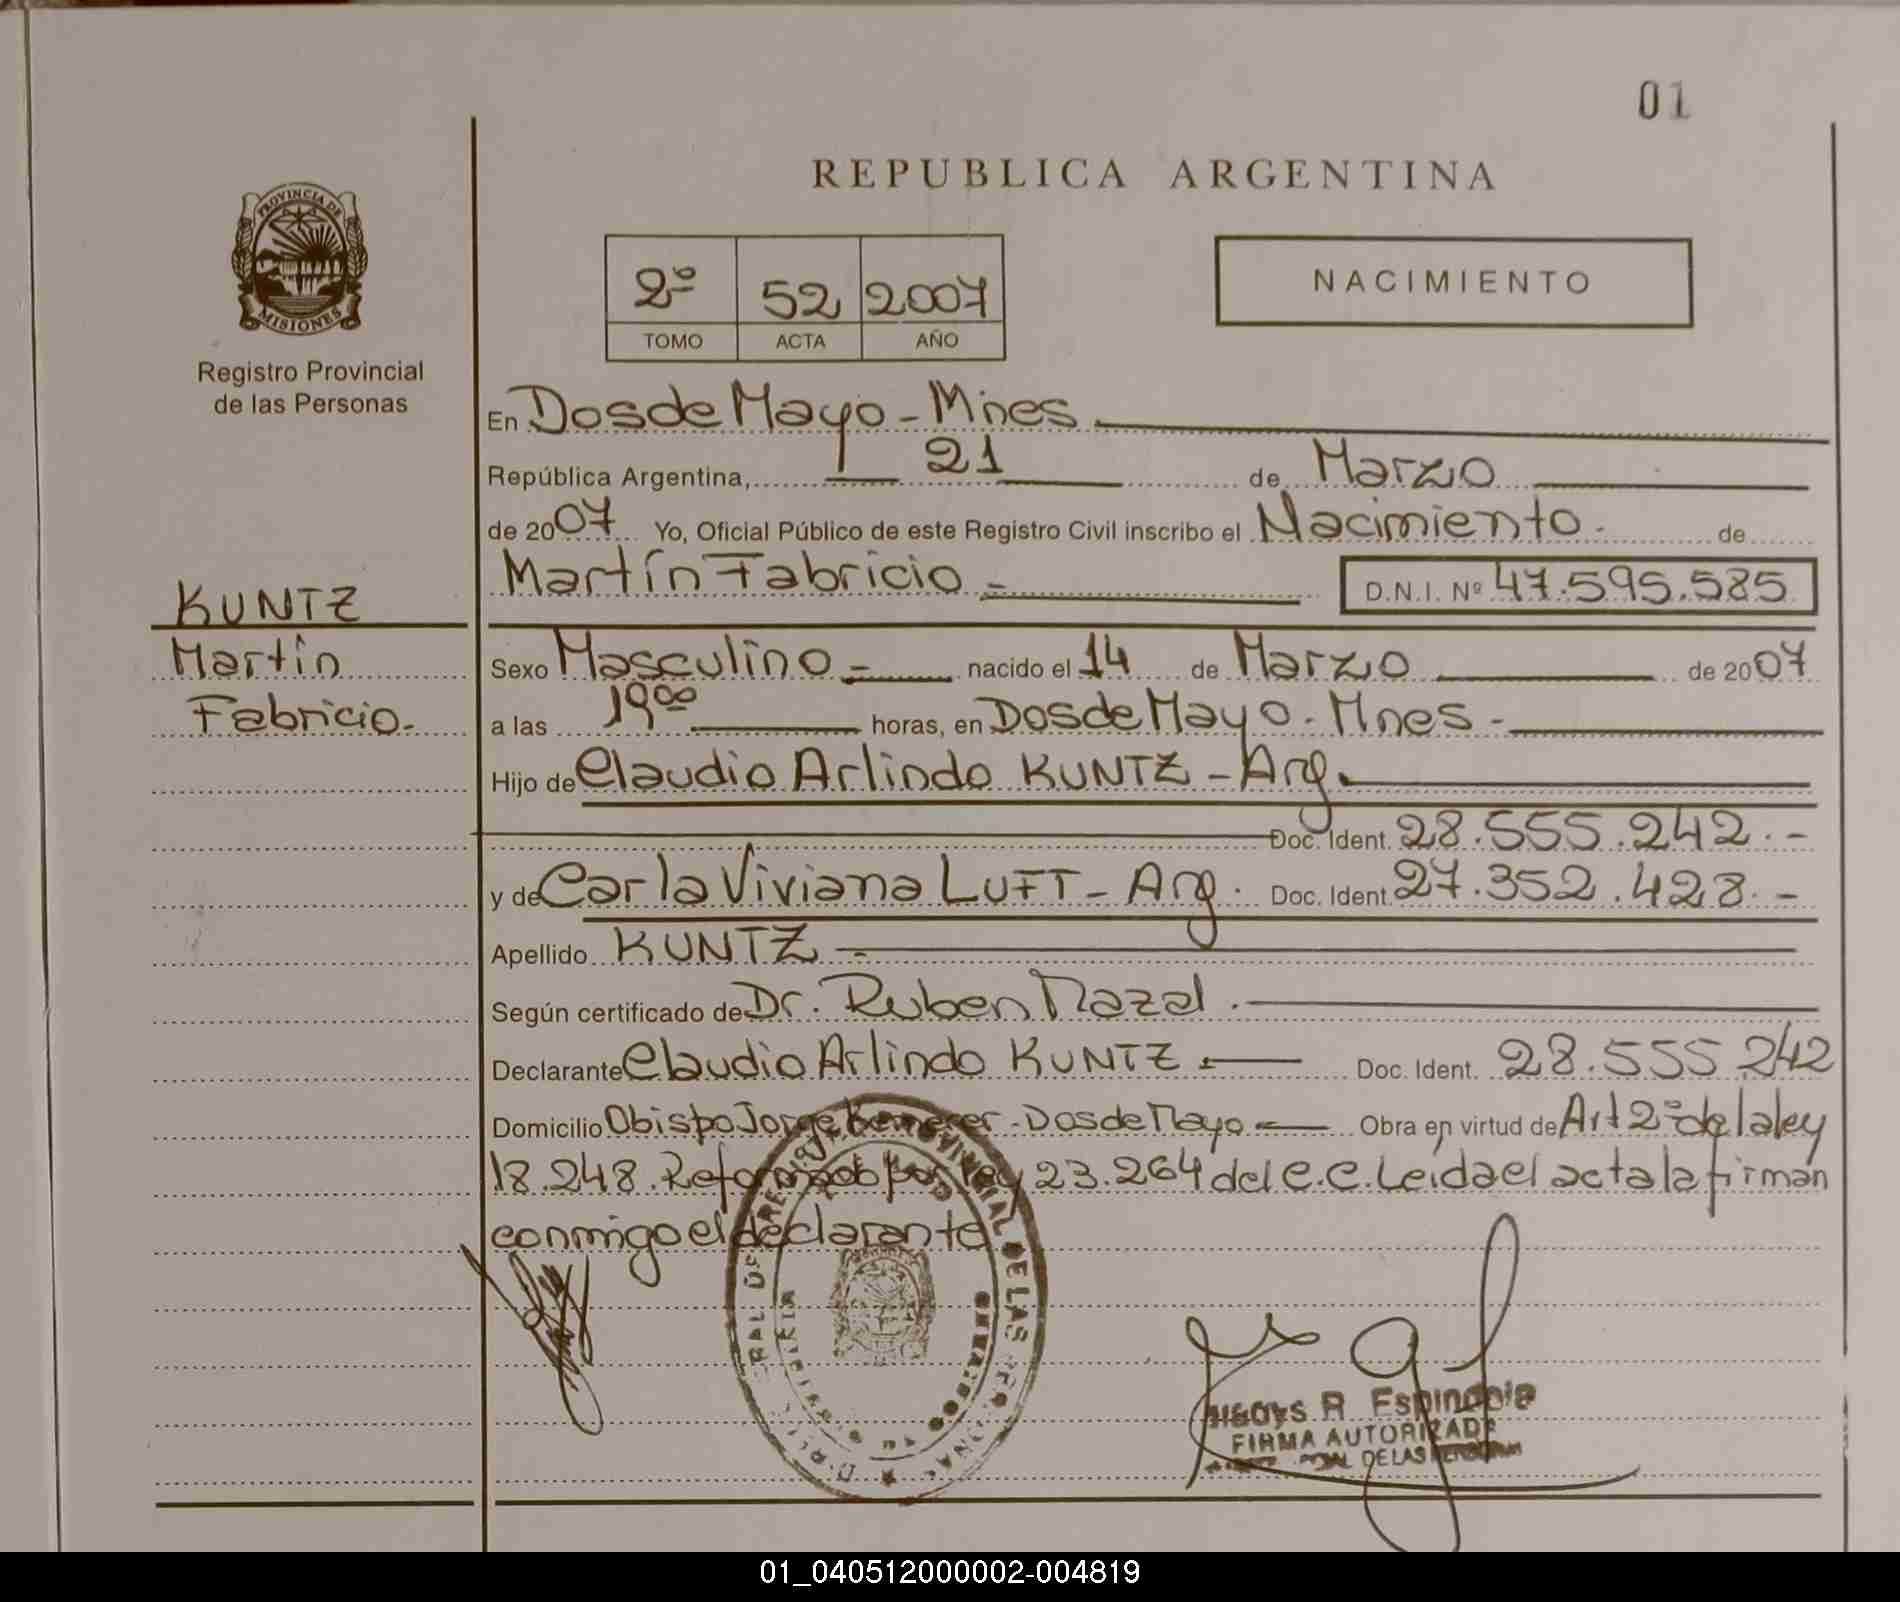 01
REPUBLICA ARGENTINA
PROVINCIA DE
MISIONES
Registro Provincial
de las Personas
2º 52 2007
TOMO ACTA AÑO
NACIMIENTO
En Dos de Mayo - Mnes
República Argentina, 21 de Marzo
de 2007 Yo, Oficial Público de este Registro Civil inscribo el Nacimiento. de
Martín Fabricio.- D.N.I. Nº 47.595.585
KUNTZ
Martín
Fabricio.-
Sexo Masculino.- nacido el 14 de Marzo de 2007
a las 19⁰⁰ horas, en Dos de Mayo. Mnes -
Hijo de Claudio Arlindo KUNTZ - Arg.
Doc. Ident. 28.555.242.-
y de Carla Viviana LUFT - Arg. Doc. Ident. 27.352.428.-
Apellido KUNTZ.-
Según certificado de Dr. Ruben Mazal.
Declarante Claudio Arlindo KUNTZ.- Doc. Ident. 28.555.242
Domicilio Obispo Jorge Kemerer - Dos de Mayo.- Obra en virtud de Art 2º de la ley
18.248. Reformado por ley 23.264 del C.C. Leida el acta la firman
conmigo el declarante
R. Espindola
FIRMA AUTORIZADA
DE LAS
01_040512000002-004819